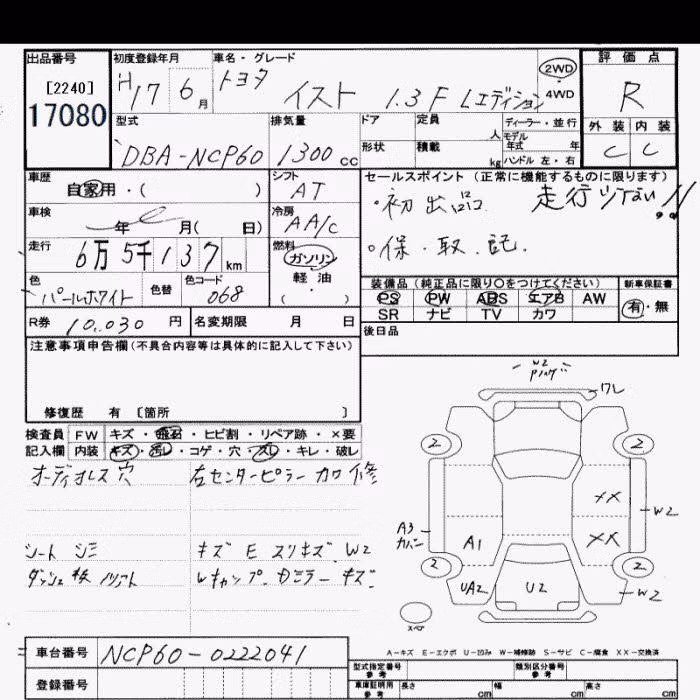 出品番号 初度登録年月 車名・グレード 評価点
[2240] H17 6月 トヨタ イスト 1.3F Lエディション 2WD 4WD R
17080 型式 排気量 ドア 定員 人 ディーラー・並行 外装 内装
DBA-NCP60 1300cc 形状 積載 kg モデル年式 年 ハンドル 左・右 C C
車歴 自家用・( ) シフト AT セールスポイント(正常に機能するものに限ります)
・初出品 走行少ない!!
車検 年 月( 日) 冷房 AA/C
・保・取・記.
走行 6万5千137km 燃料 ガソリン 軽油・( )
色 パールホワイト 色替 色コード 068 装備品(純正品に限り○をつけてください) 新車保証書
PS PW ABS エアB AW 有・無
SR ナビ TV カワ
R券 10,030円 名変期限 月 日 後日品
注意事項申告欄(不具合内容等は具体的に記入して下さい)
修復歴 有 [箇所 ]
検査員 FW キズ・飛石・ヒビ割・リペア跡・×要
記入欄 内装 キズ・汚レ・コゲ・穴・スレ・キレ・破レ
オーディオレス穴 右センターピラー カワ修
シート シミ キズ E スリキズ W2
ダッシュ板 キズ
W2
ワレ
2 2
XX
W2
A3 カバー A1 XX
2 2
UA2 U2 W2
スペア
A-キズ E-エクボ U-凹み W-補修跡 S-サビ C-腐食 XX-交換済
車台番号 NCP60-0222041 型式指定番号 参考 類別区分番号 参考
登録番号 車庫証明用 参考 長さ cm 幅 cm 高さ cm